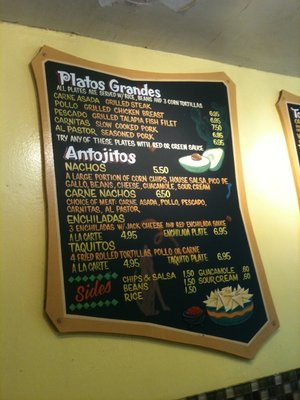 Platos Grandes
ALL PLATES ARE SERVED W/RICE, BEANS AND 3 CORN TORTILLAS
CARNE ASADA GRILLED STEAK
POLLO GRILLED CHICKEN BREAST 6.95
PESCADO GRILLED TALAPIA FISH FILET 6.95
CARNITAS SLOW COOKED PORK 7.50
AL PASTOR SEASONED PORK 6.95
TRY ANY OF THESE PLATES WITH RED OR GREEN SAUCE 6.95
Antojitos
NACHOS 5.50
A LARGE PORTION OF CORN CHIPS, HOUSE SALSA, PICO DE
GALLO, BEANS, CHEESE, GUACAMOLE, SOUR CREAM
CARNE NACHOS 6.50
CHOICE OF MEAT: CARNE ASADA, POLLO, PESCADO,
CARNITAS, AL PASTOR
ENCHILADAS
3 ENCHILADAS W/ JACK CHEESE AND RED ENCHILADA SAUCE
A LA CARTE 4.95 ENCHILADA PLATE 6.95
TAQUITOS
4 FRIED ROLLED TORTILLAS, POLLO OR CARNE
A LA CARTE 4.95 TAQUITO PLATE 6.95
Sides
CHIPS & SALSA 1.50 GUACAMOLE .60
BEANS 1.50 SOUR CREAM .60
RICE 1.50